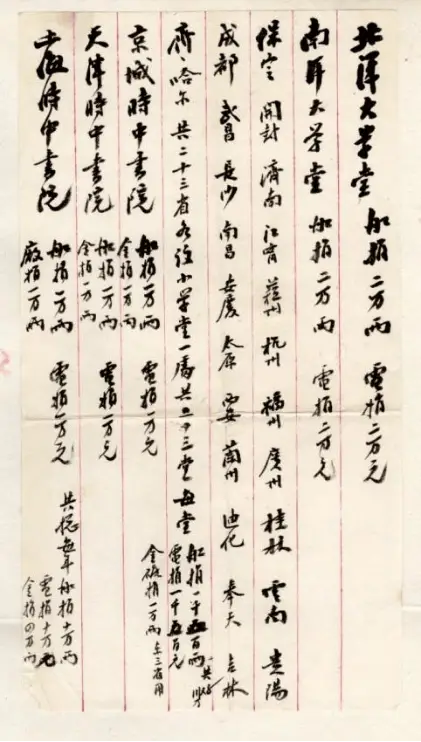 北洋大学堂 船捐二万两 電捐二万元
南洋大学堂 船捐二万两 電捐二万元
保定 開封 濟南 江甯 蘇州 杭州 福州 廣州 桂林 雲南 貴陽
成都 武昌 長沙 南昌 安慶 太原 西安 蘭州 迪化 奉天 吉林
齊哈尔 共二十三省各設小学堂一所共二十三堂每堂
船捐一千五百两
電捐一千五百元
金礦捐一万两 东三省用
京城時中書院 船捐一万两 電捐一万元
金捐一万两
天津時中書院 船捐一万两 電捐一万元
金捐一万两
上海時中書院 船捐一万两 電捐一万元
廠捐一万两
共總每年船捐十万两
電捐十万元
金捐四万两